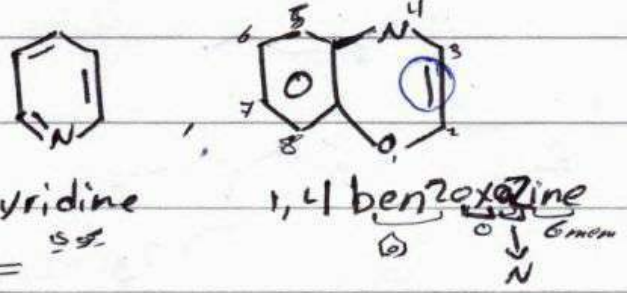 5 4
6 N 3
7 2
8 O 1
N
yridine 1,4 benzoxazine
(6) O 6 mem
N